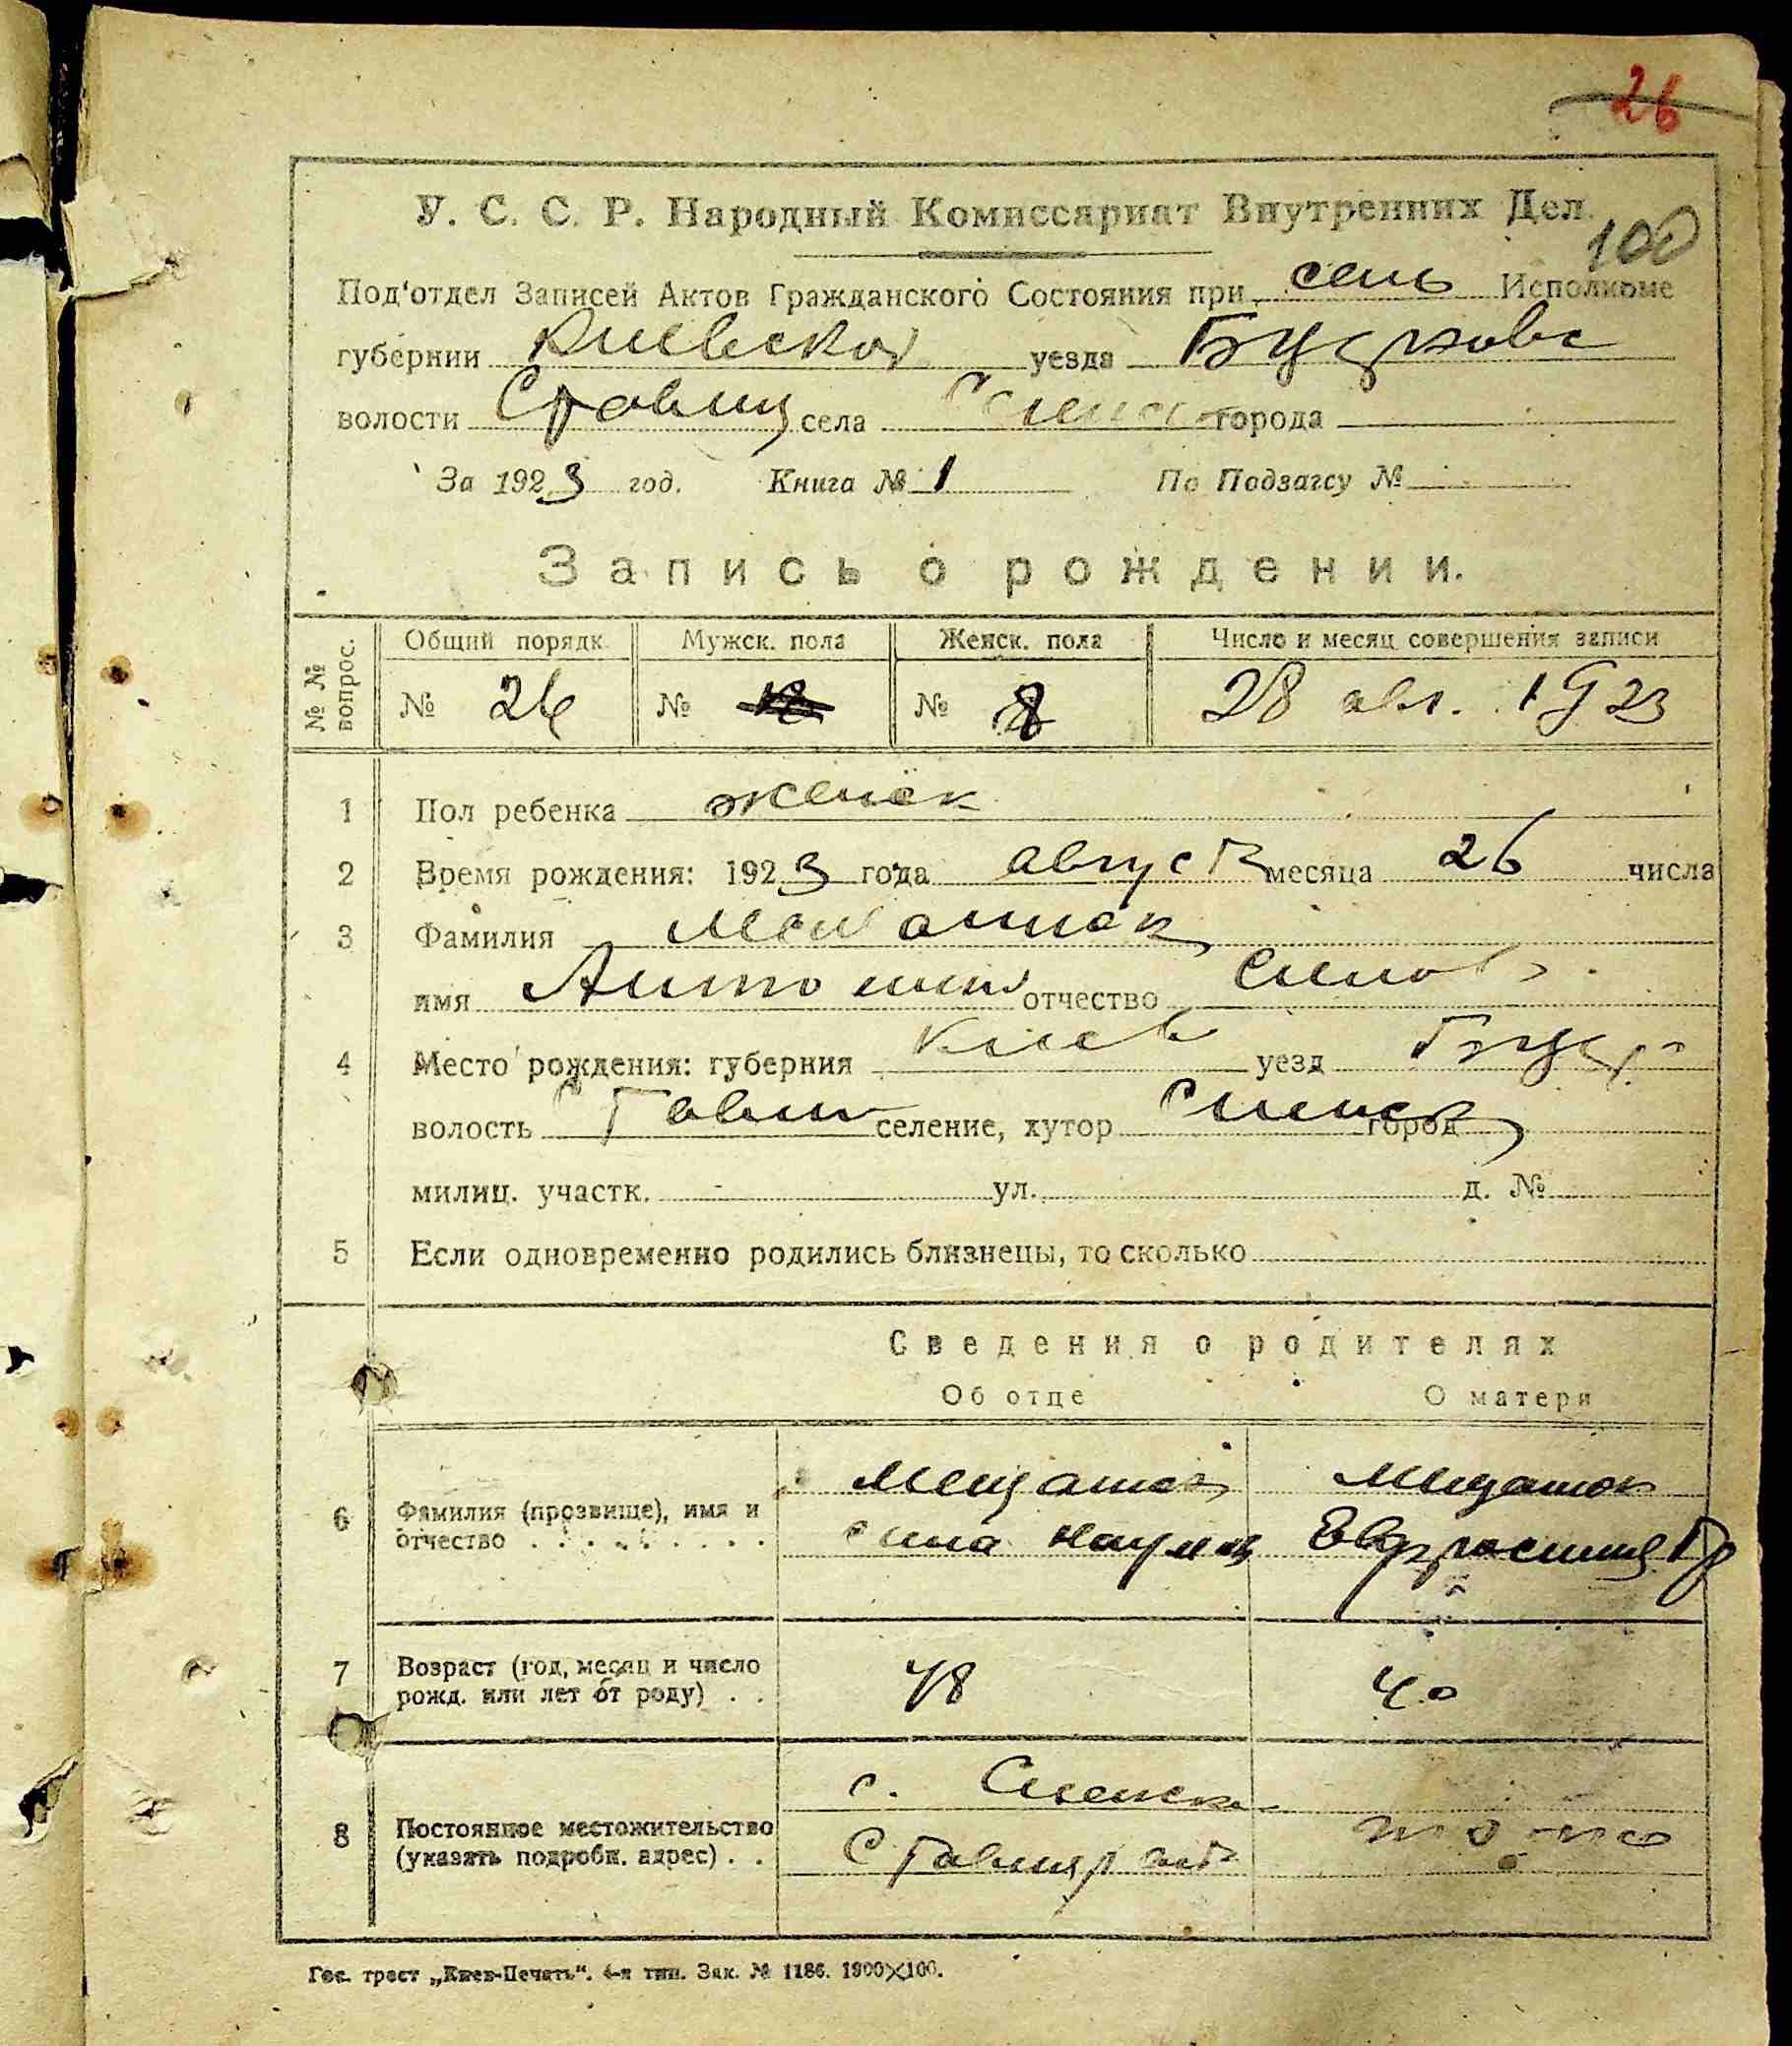 26
100
У. С. С. Р. Народный Комиссариат Внутренних Дел.
Под'отдел Записей Актов Гражданского Состояния при сель Исполкоме
губернии Киевской уезда
волости села города
За 1923 год. Книга № 1 По Подзагсу №
Запись о рождении.
№№ вопрос. Общий порядк. Мужск. пола Женск. пола Число и месяц совершения записи
№ 26 № № 8 28 авг. 1923
1 Пол ребенка женск
2 Время рождения: 1923 года август месяца 26 числа
3 Фамилия
имя отчество
4 Место рождения: губерния Киев уезд
волость Ставищ селение, хутор город
милиц. участк. - ул. д. №
5 Если одновременно родились близнецы, то сколько
Сведения о родителях
Об отце О матери
6 Фамилия (прозвище), имя и отчество Мещанюк Мещанюк
Наумов Евфросиния
7 Возраст (год, месяц и число рожд. или лет от роду) 48 40
8 Постоянное местожительство (указать подробн. адрес) с.
Гос. трест „Киев-Печать“. 4-я тип. Зак. № 1186. 1900×100.